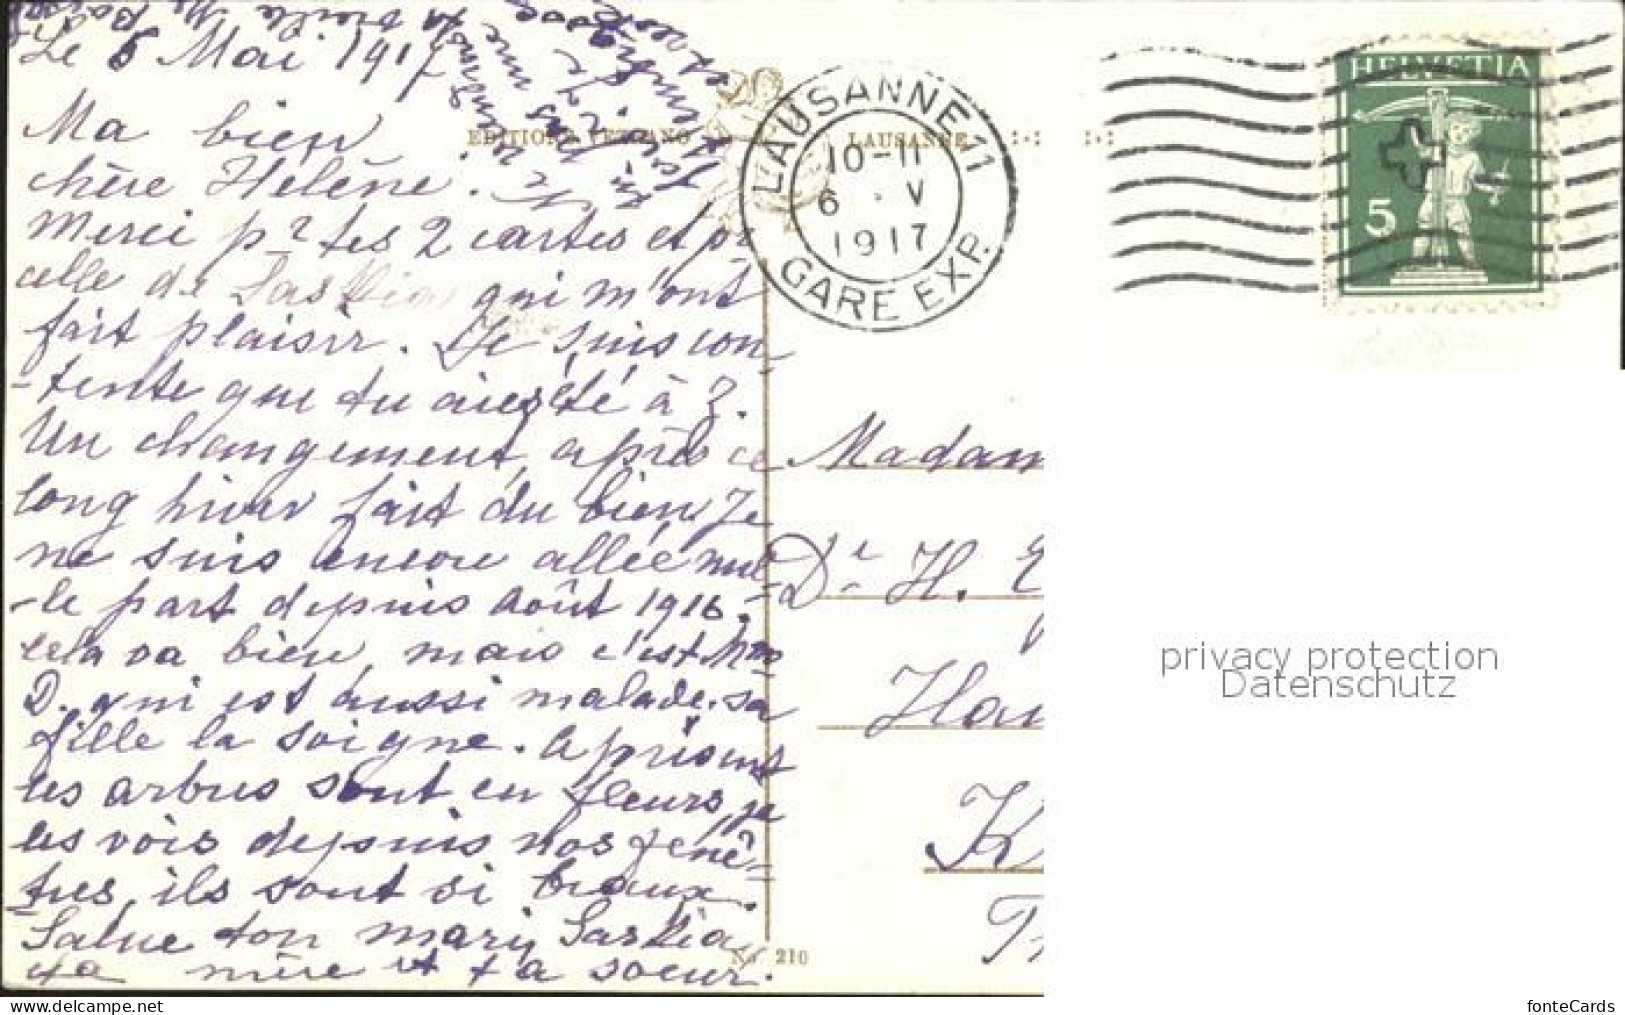 Le 6 Mai 1917
Ma bien
chère Hélène.
Merci pr tes 2 cartes et pr
celle de Saskia qui m'ont
fait plaisir. Je suis con-
-tente que tu aies été à Z.
Un changement, après ce
long hiver fait du bien. Je
ne suis encore allée nul-
-le part depuis Août 1916.
Cela va bien, mais c'est Mme
D. qui est aussi malade. sa
fille la soigne. A présent
les arbres sont en fleurs, je
les vois depuis nos fenê-
-tres, ils sont si beaux.
Salue ton mari, Saskia,
ta mère et ta soeur.
EDITIONS LAUSANNE
LAUSANNE 11
10-11
6 . V
1917
GARE EXP.
HELVETIA
5
Madam
Dr H.
Hau
K
No 210
privacy protection
Datenschutz
fonteCards